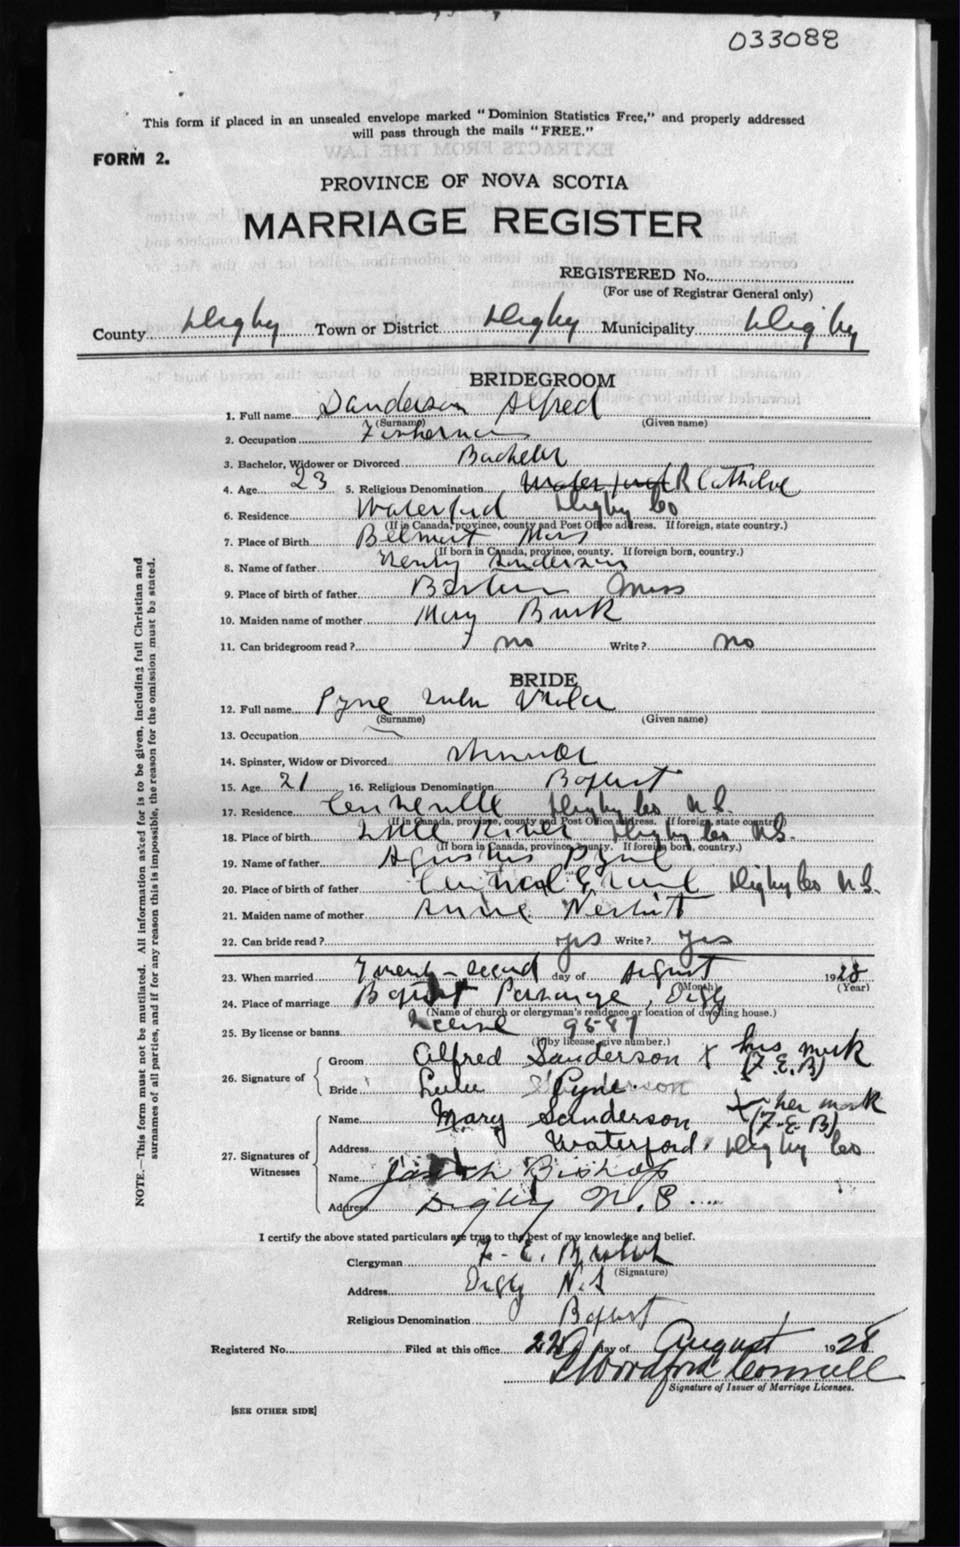 033088
This form if placed in an unsealed envelope marked "Dominion Statistics Free," and properly addressed
will pass through the mails "FREE."
FORM 2.
PROVINCE OF NOVA SCOTIA
MARRIAGE REGISTER
REGISTERED No.
(For use of Registrar General only)
County Digby Town or District Digby Municipality Digby
BRIDEGROOM
1. Full name Sanderson Alfred
(Surname) (Given name)
2. Occupation Fisherman
3. Bachelor, Widower or Divorced Bachelor
4. Age 23 5. Religious Denomination Waterford R Catholic
6. Residence Waterford Digby Co
(If in Canada, province, county and Post Office address. If foreign, state country.)
7. Place of Birth Belmont Mass
(If born in Canada, province, county. If foreign born, country.)
8. Name of father Henry Sanderson
9. Place of birth of father Boston Mass
10. Maiden name of mother Mary Burk
11. Can bridegroom read? no Write? no
BRIDE
12. Full name Pyne Lulu Viola
(Surname) (Given name)
13. Occupation
14. Spinster, Widow or Divorced
15. Age 21 16. Religious Denomination Baptist
17. Residence Centreville Digby Co N.S.
(If in Canada, province, county and Post Office address. If foreign, state country.)
18. Place of birth Little River Digby Co N.S.
(If born in Canada, province, county. If foreign born, country.)
19. Name of father Pyne
20. Place of birth of father Central Grove Digby Co N.S.
21. Maiden name of mother Annie Nesbitt
22. Can bride read? yes Write? yes
23. When married Twenty-second day of August 1928
(Month) (Year)
24. Place of marriage Baptist Parsonage, Digby
(Name of church or clergyman's residence or location of dwelling house.)
25. By license or banns License 9587
(If by license, give number.)
26. Signature of
Groom Alfred Sanderson X his mark
(F.E.B)
Bride Lulu Pyne
27. Signatures of Witnesses
Name Mary Sanderson X her mark
(F.E.B)
Address Waterford, Digby Co
Name Bishop
Address Digby N.S.
I certify the above stated particulars are true to the best of my knowledge and belief.
Clergyman F. E.
(Signature)
Address Digby N.S
Religious Denomination Baptist
Registered No. Filed at this office 22 day of August 1928
Signature of Issuer of Marriage Licenses.
[SEE OTHER SIDE]
NOTE.—This form must not be mutilated. All information asked for is to be given, including full Christian and
surnames of all parties, and if for any reason this is impossible, the reason for the omission must be stated.